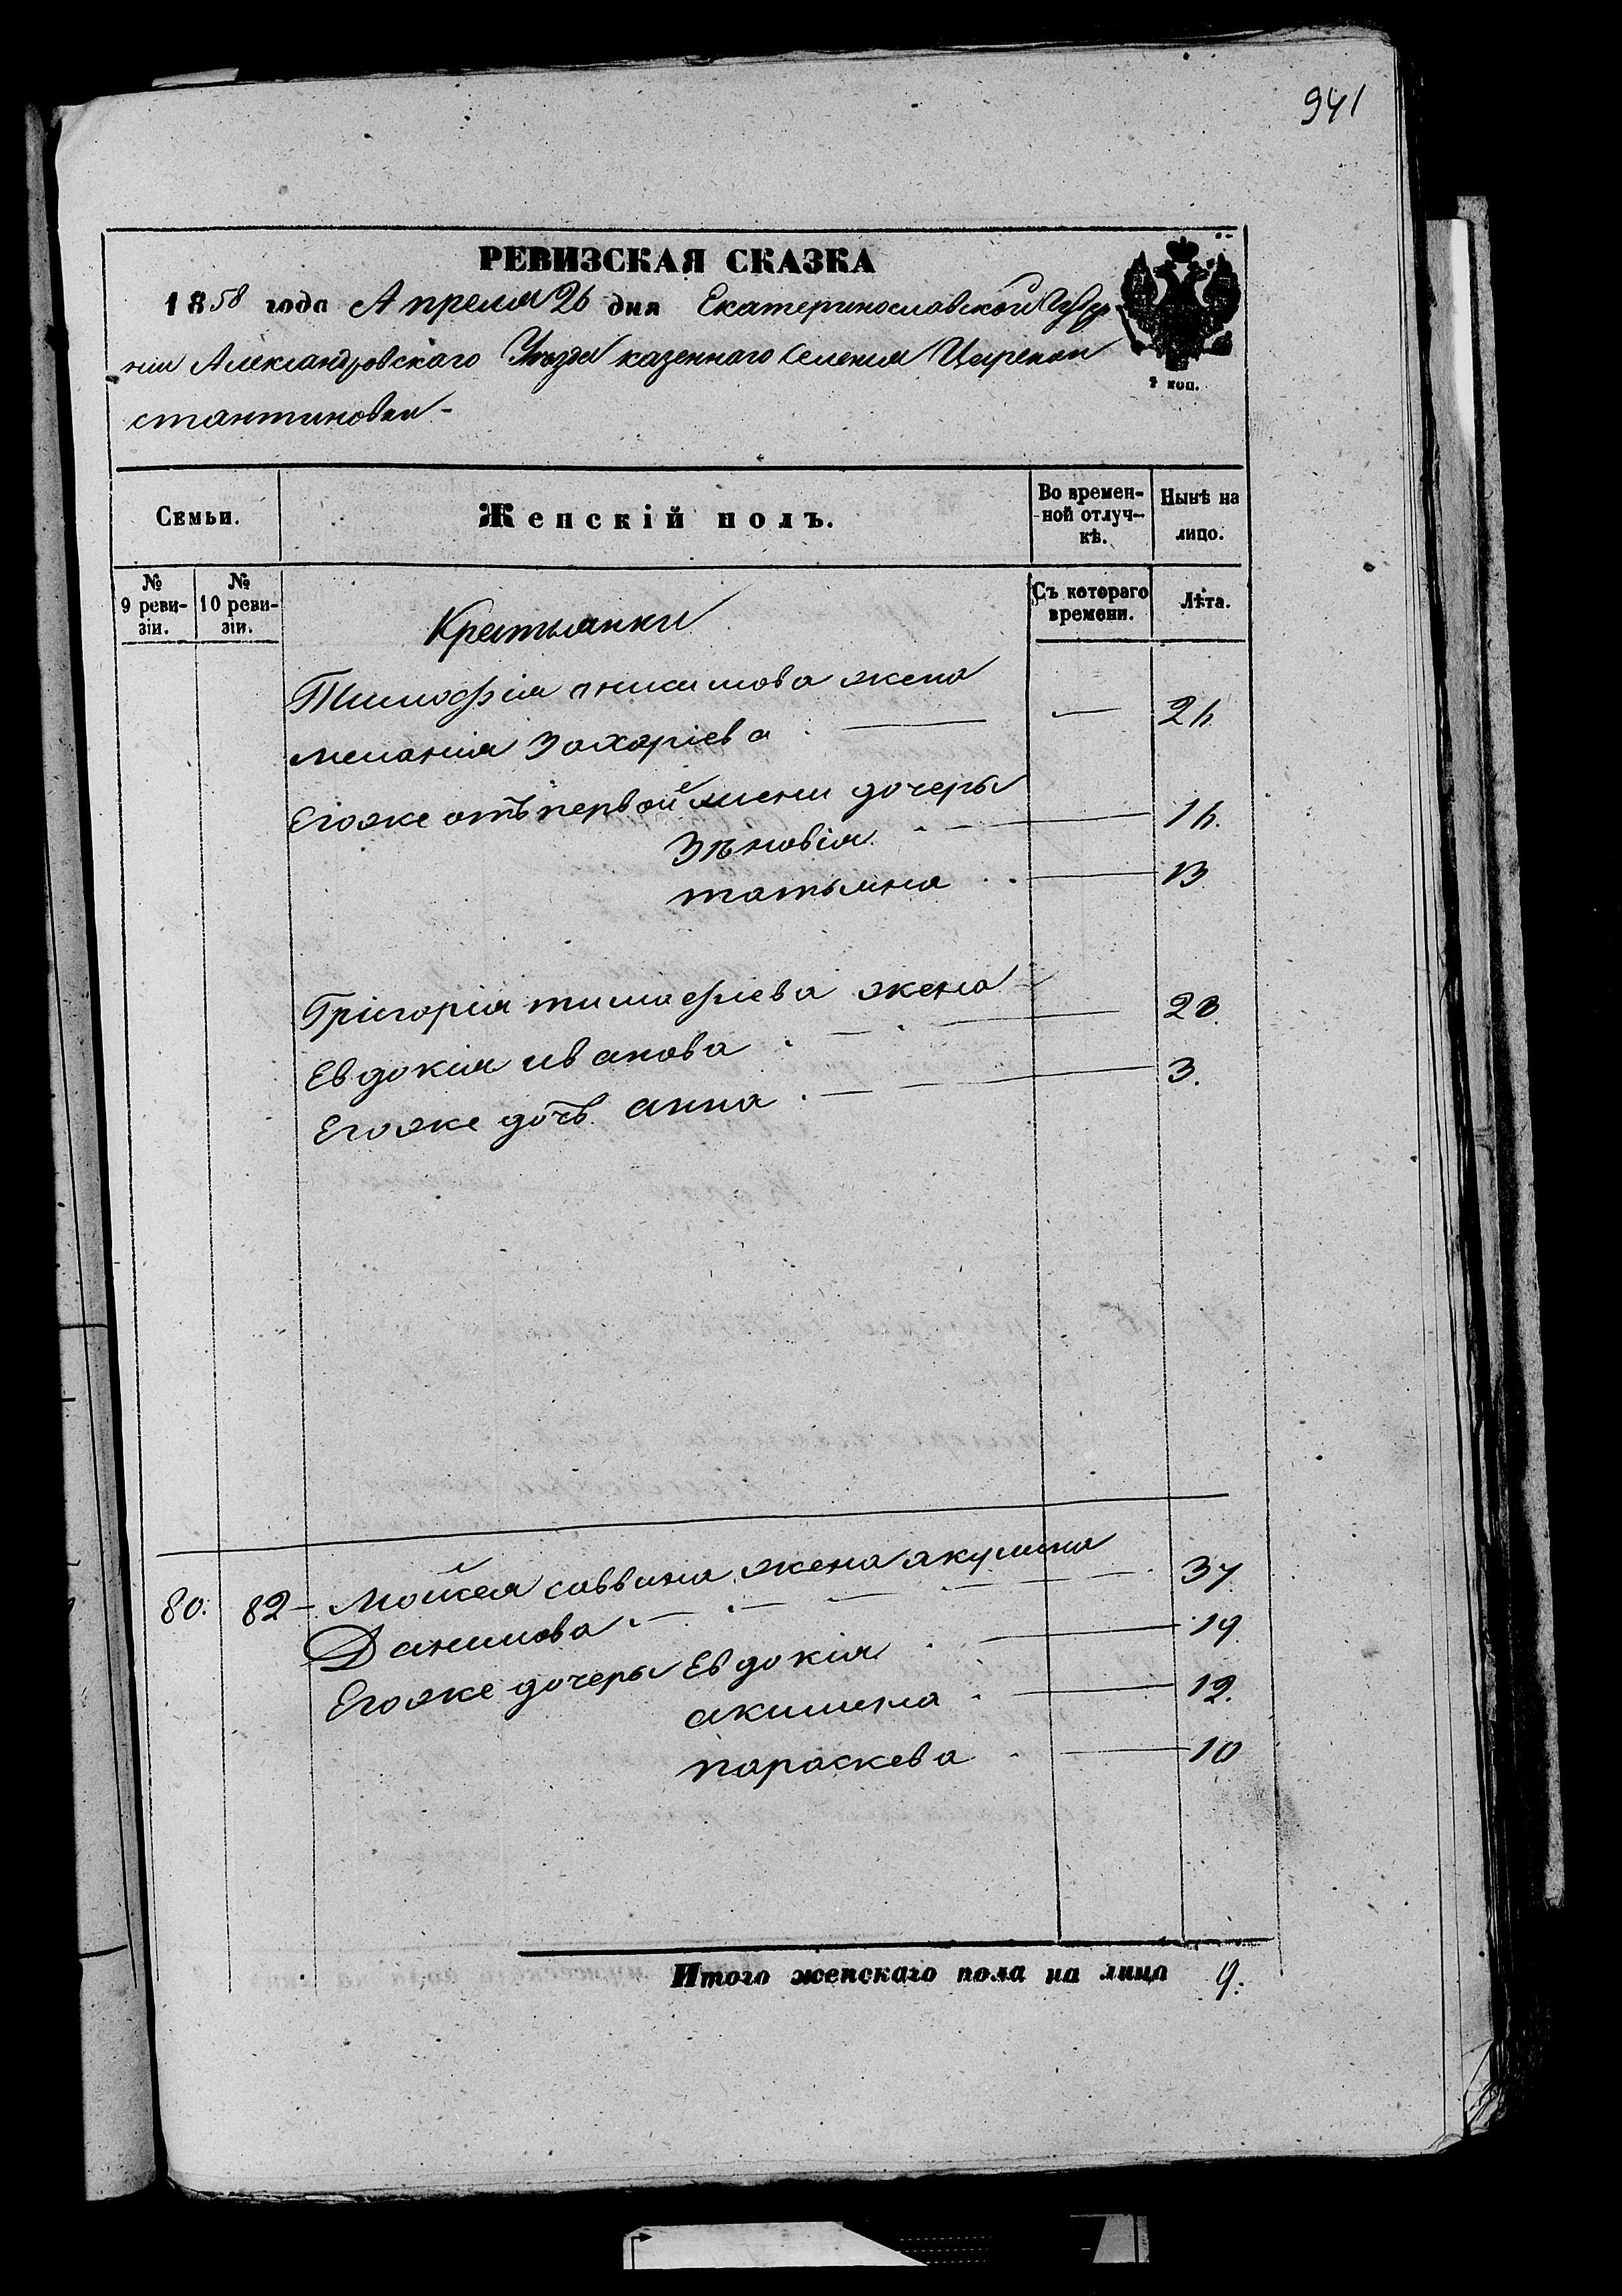 941
РЕВИЗСКАЯ СКАЗКА
1858 года Апреля 26 дня Екатеринославской Губер
нии Александровскаго Уѣзда казеннаго Селения Царекон
стантиновки -
2 коп.
Семьи. Женскій полъ. Во времен-ной отлуч-кѣ. Нынѣ на лицо.
№ 9 реви-зіи. № 10 реви-зіи. Съ котораго времени. Лѣта.
Крестьянки
Тимофія анисимова жена
мелания Захаріева — 2
Егоже отъ первой жени дочеры
Зѣновія 1
татьяна 13
Грігория тимофиева жена
Евдокия иванова 23.
Егоже дочь анна 3.
80. 82 Мойсея саввина жена акулина
Данилова 37
Егоже дочеры Евдокия 19
акилина 12.
параскева 10
Итого женскаго пола на лицо 9.